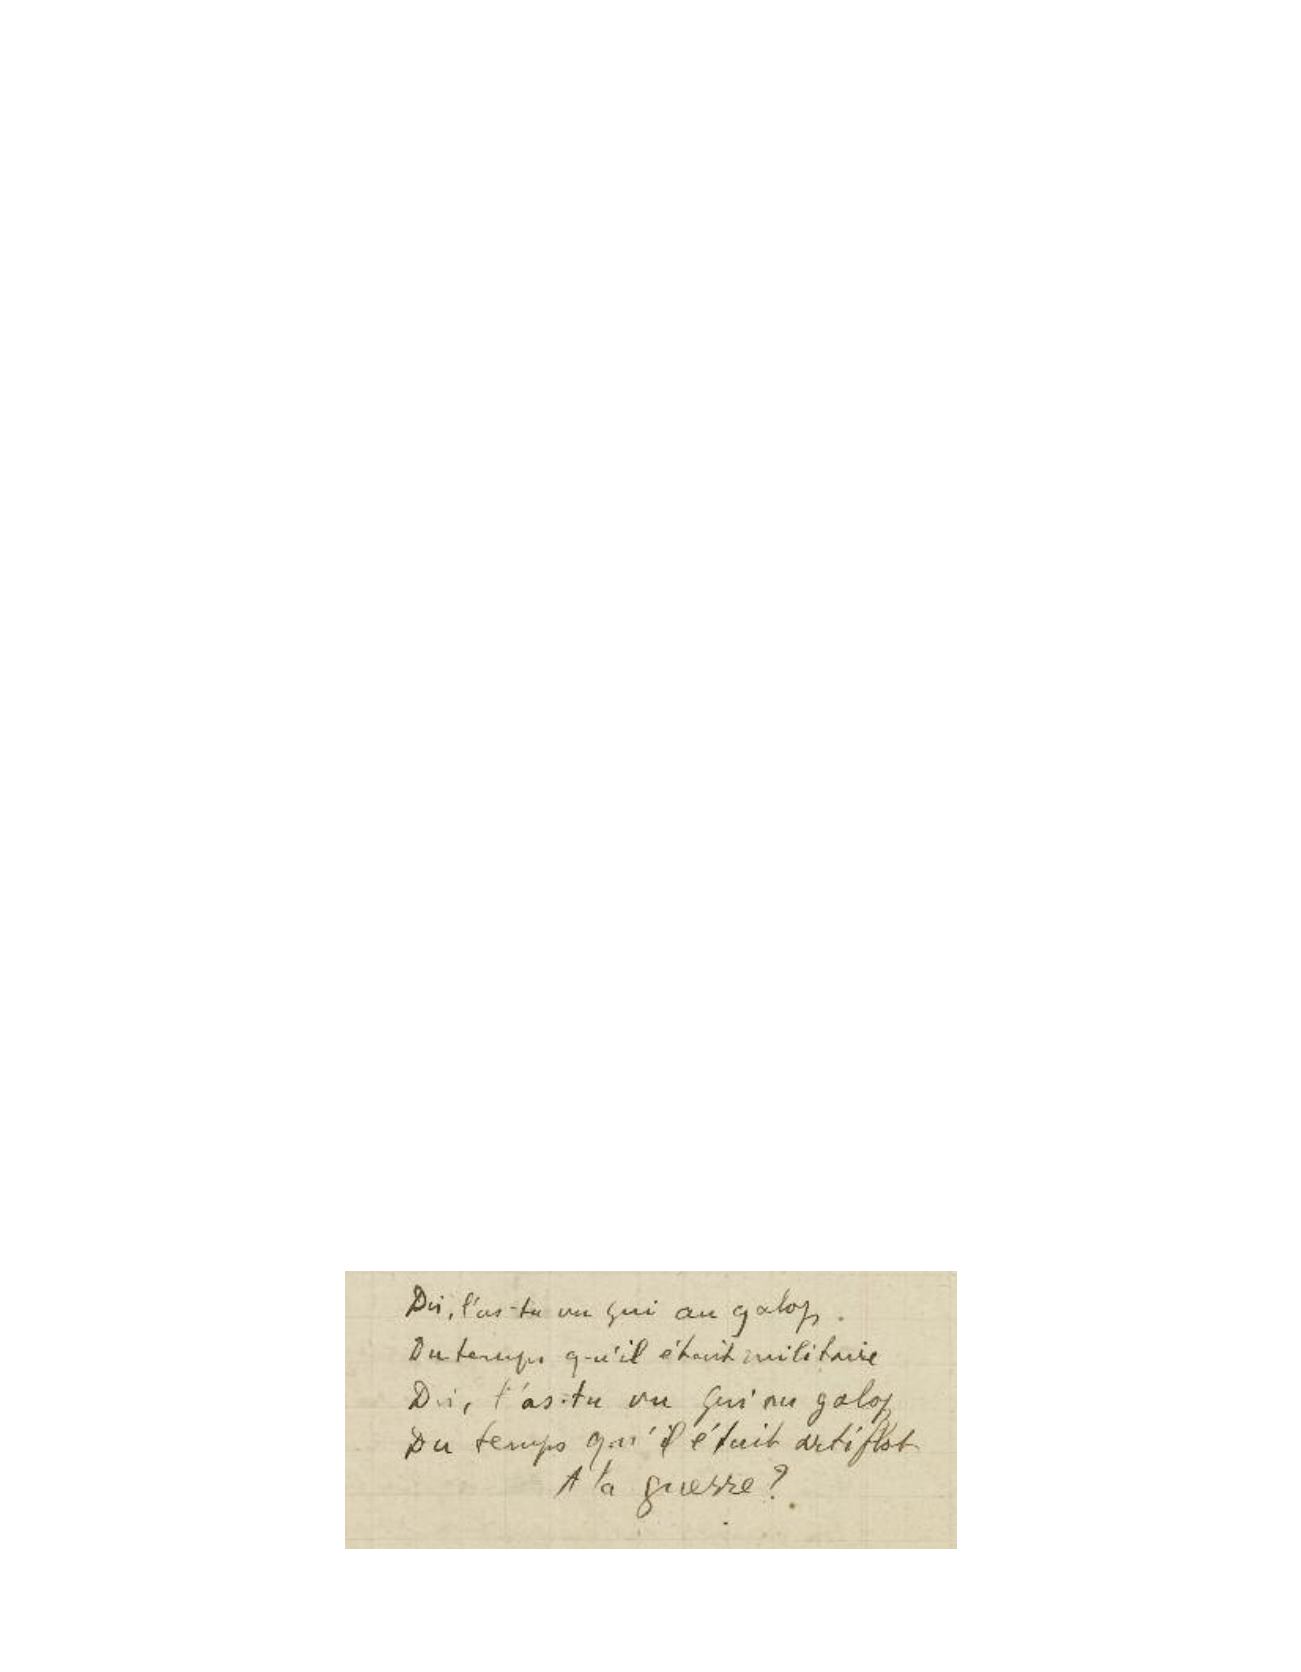 Dis, l'as-tu vu Gui au galop.
Du temps qu'il était militaire
Dis, l'as-tu vu Gui au galop
Du temps qu'il était artiflot
A la guerre?